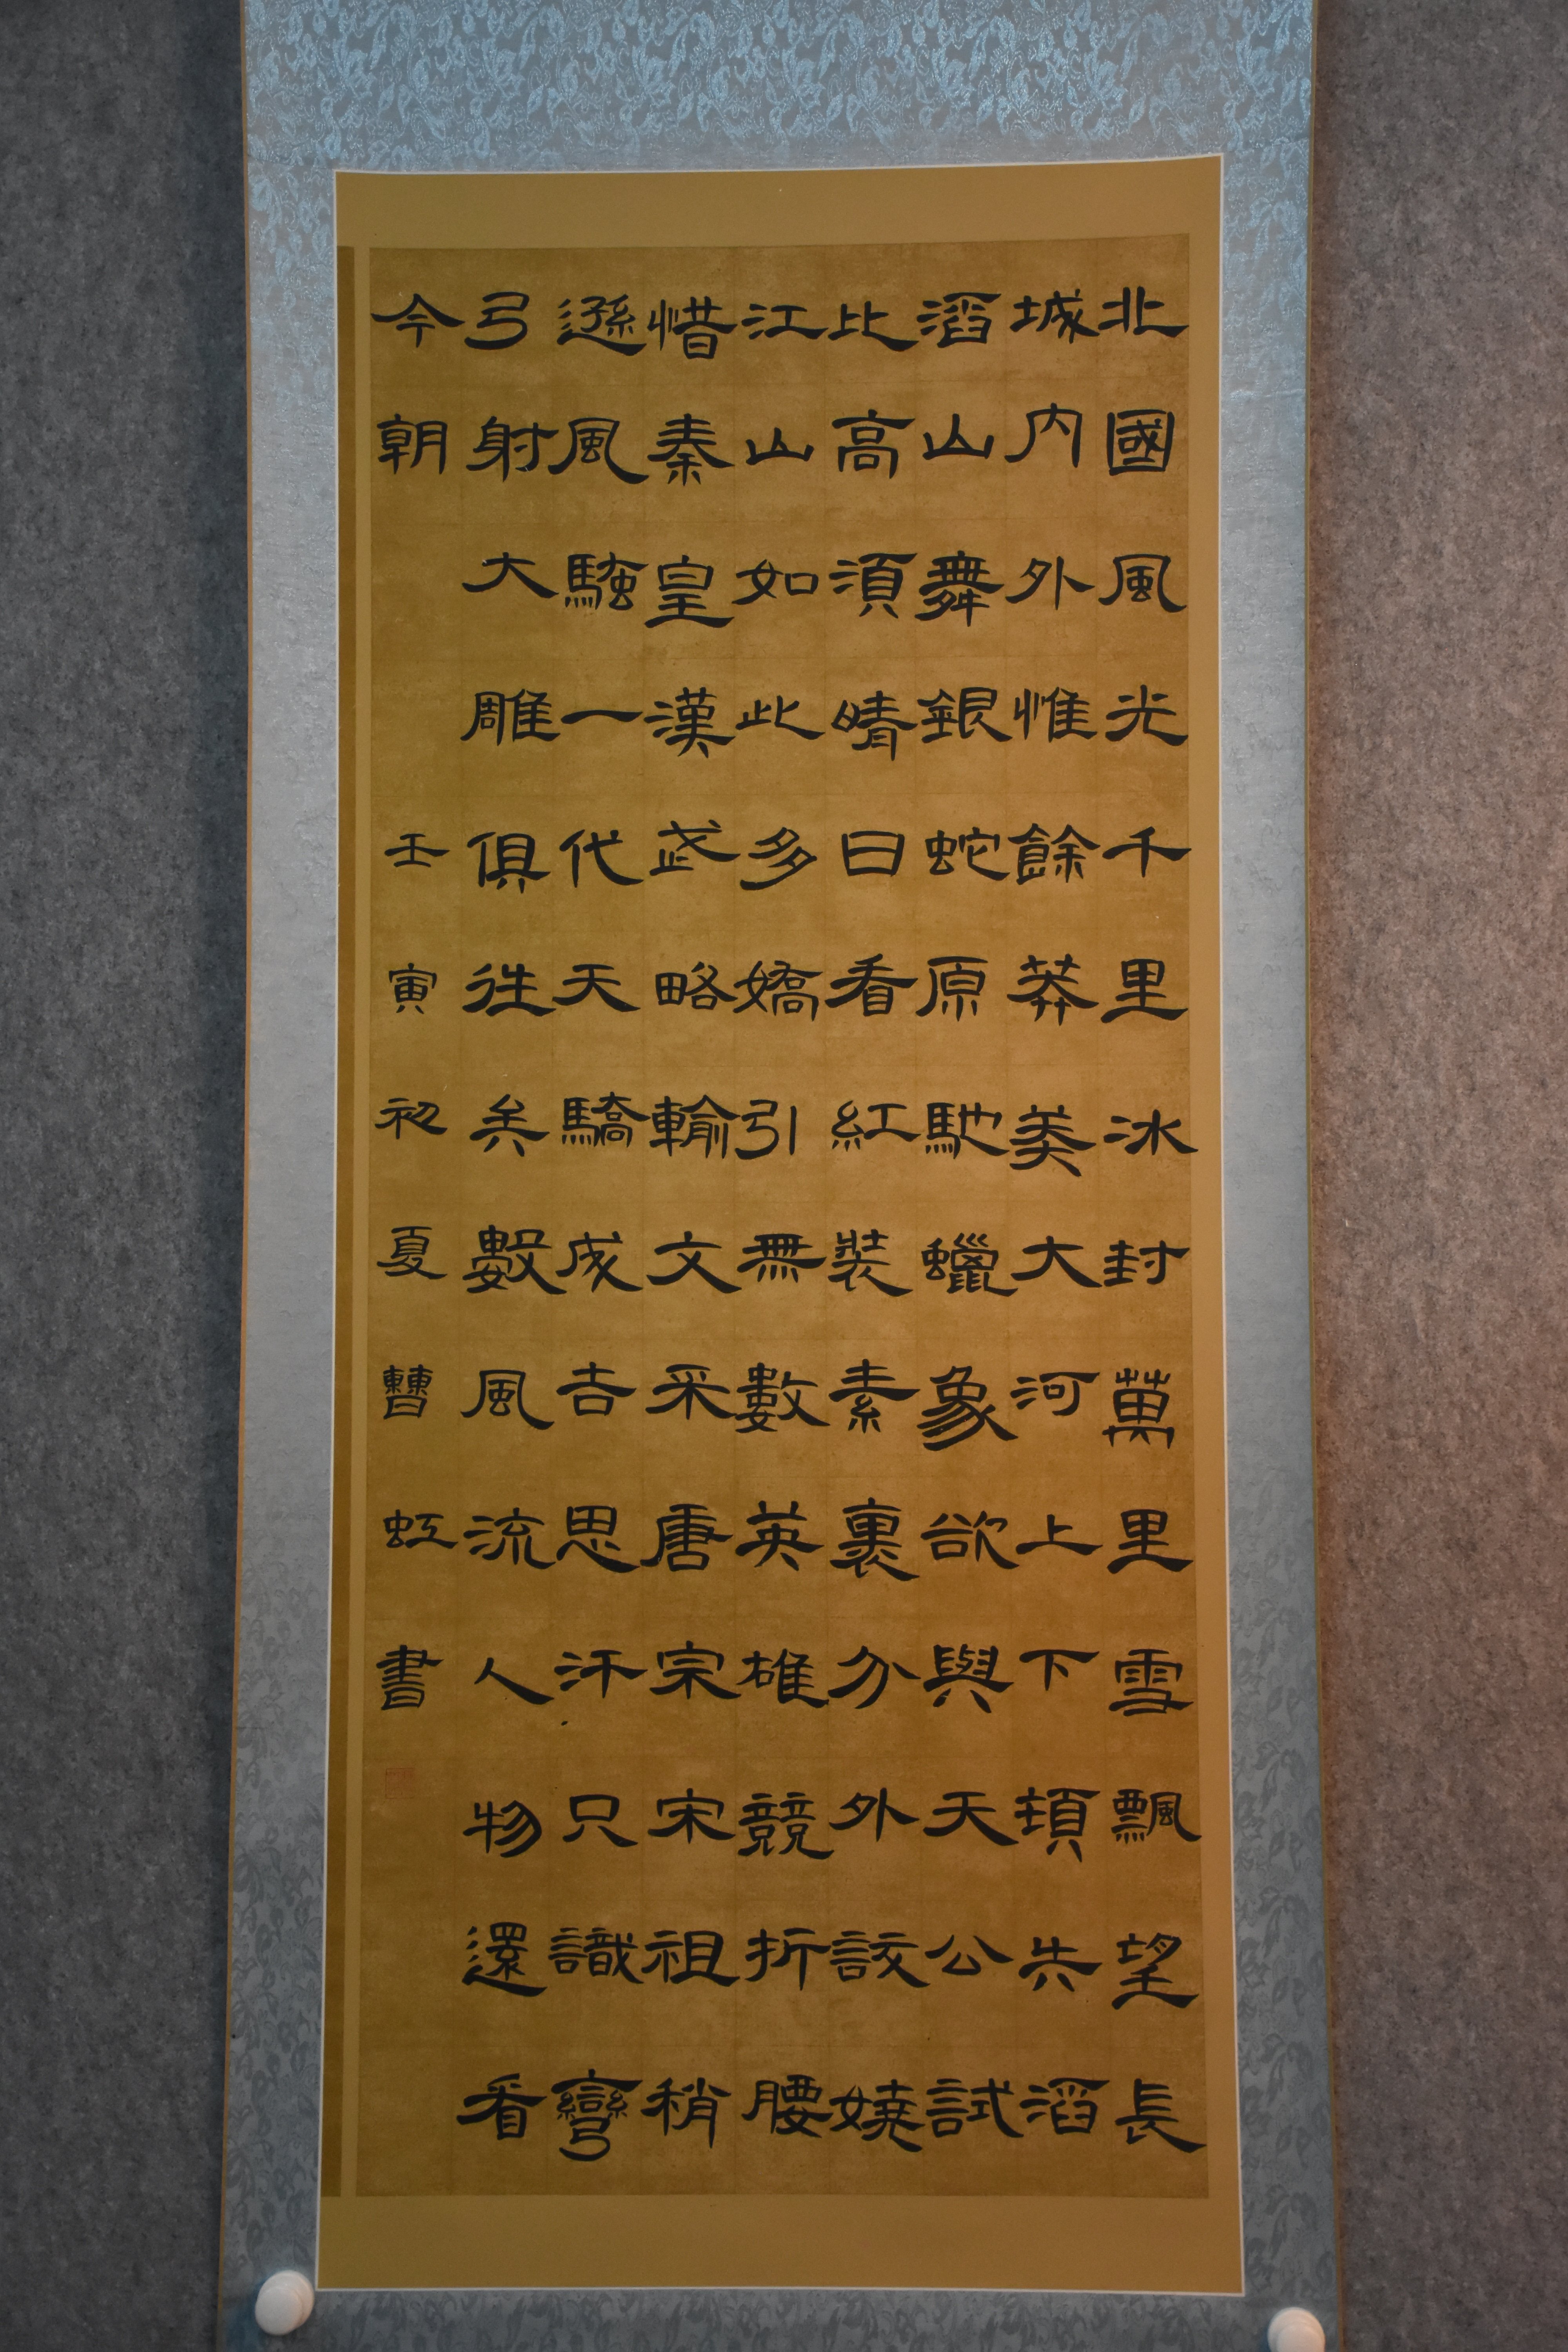 北國風光千里冰封萬里雪飄望長
城內外惟餘莽莽大河上下頓失滔
滔山舞銀蛇原馳蠟象欲與天公試
比高須晴日看紅裝素裹分外該嬈
江山如此多嬌引無數英雄競折腰
惜秦皇漢武略輸文采唐宗宋祖稍
遜風騷一代天驕成吉思汗只識彎
弓射大雕俱往矣數風流人物還看
今朝 壬寅初夏曹虹書